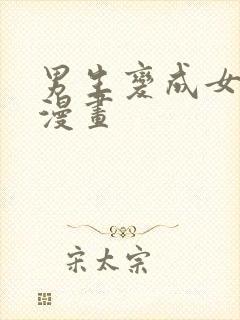 男生變成女
漫畫
宋太宗